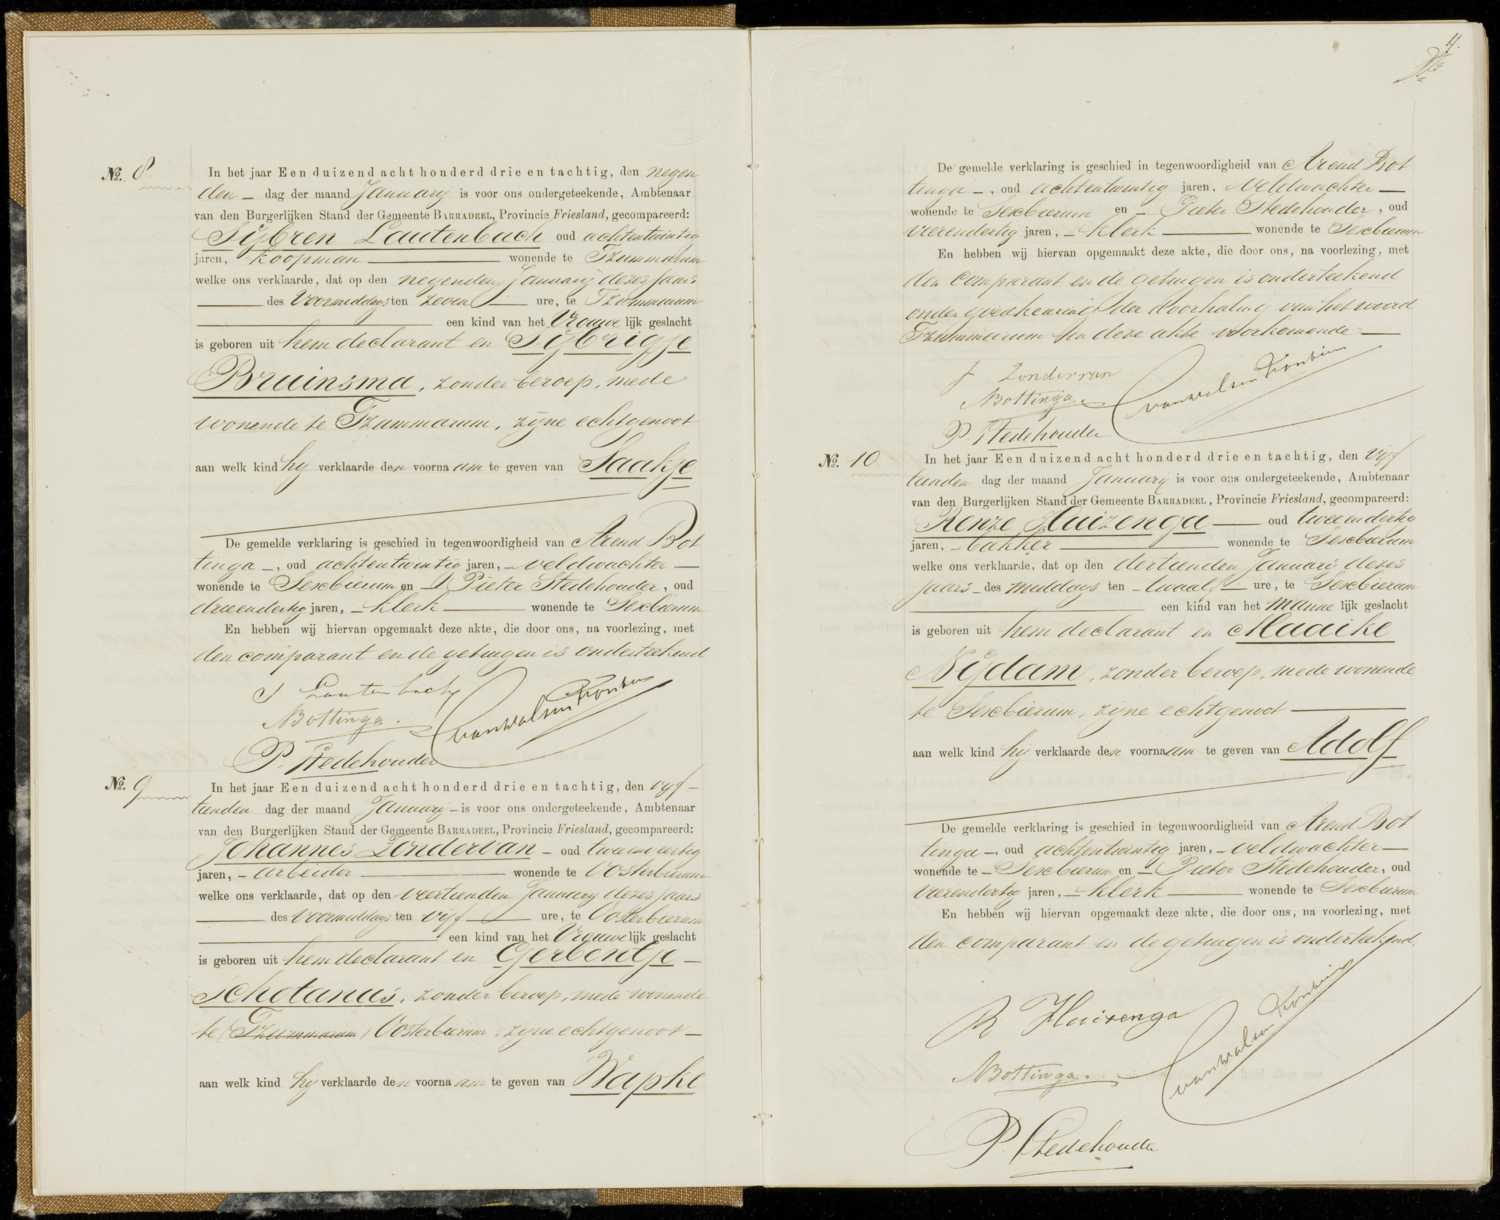 №. 8
In het jaar Een duizend acht honderd drie en tachtig, den negen
den dag der maand January is voor ons ondergeteekende, Ambtenaar
van den Burgerlijken Stand der Gemeente BARRADEEL, Provincie Friesland, gecompareerd:
Sijbren Lautenbach oud achtentwintig
jaren, koopman wonende te Tzummarum
welke ons verklaarde, dat op den negenden January dezes jaars
des Voormiddags ten zeven ure, te Tzummarum
een kind van het Vrouwe lijk geslacht
is geboren uit hem declarant en Sijbrigje
Bruinsma, zonder beroep, mede
wonende te Tzummarum, zijne echtgenoot
aan welk kind hij verklaarde den voornaam te geven van Taakje
De gemelde verklaring is geschied in tegenwoordigheid van Arend Bot
tinga, oud achtentwintig jaren, veldwachter
wonende te Sexbierum en Pieter Stedehouder, oud
drieendertig jaren, klerk wonende te Sexbierum
En hebben wij hiervan opgemaakt deze akte, die door ons, na voorlezing, met
den comparant en de getuigen is onderteekend
S Lautenbach
ABottinga.
van Walsem Kronbien
P. Stedehouder
№. 9
In het jaar Een duizend acht honderd drie en tachtig, den vijf
tienden dag der maand January is voor ons ondergeteekende, Ambtenaar
van den Burgerlijken Stand der Gemeente BARRADEEL, Provincie Friesland, gecompareerd:
Johannes Zondervan oud tweeenveertig
jaren, arbeider wonende te Oosterbierum
welke ons verklaarde, dat op den veertienden January dezes jaars
des Voormiddags ten vijf ure, te Oosterbierum
een kind van het Vrouwe lijk geslacht
is geboren uit hem declarant en Gerbentje
Schotanus, zonder beroep, mede wonende
te (Tzummarum) Oosterbierum, zijne echtgenoot
aan welk kind hij verklaarde den voornaam te geven van Wapke
4.
De gemelde verklaring is geschied in tegenwoordigheid van Arend Bot
tinga, oud achtentwintig jaren, veldwachter
wonende te Sexbierum en Pieter Stedehouder, oud
vierendertig jaren, klerk wonende te Sexbierum
En hebben wij hiervan opgemaakt deze akte, die door ons, na voorlezing, met
den comparant en de getuigen is onderteekend
onder goedkeuring der doorhaling van het woord
Tzummarum in deze akte voorkomende
J Zondervan
ABottinga.
van Walsem
P. Stedehouder
№. 10
In het jaar Een duizend acht honderd drie en tachtig, den vijf
tienden dag der maand January is voor ons ondergeteekende, Ambtenaar
van den Burgerlijken Stand der Gemeente BARRADEEL, Provincie Friesland, gecompareerd:
Renze Huizenga oud tweeendertig
jaren, bakker wonende te Sexbierum
welke ons verklaarde, dat op den dertienden January dezes
jaars des middags ten twaalf ure, te Sexbierum
een kind van het Manne lijk geslacht
is geboren uit hem declarant en Maaike
Nijdam, zonder beroep, mede wonende
te Sexbierum, zijne echtgenoot
aan welk kind hij verklaarde den voornaam te geven van Adolf
De gemelde verklaring is geschied in tegenwoordigheid van Arend Bot
tinga, oud achtentwintig jaren, veldwachter
wonende te Sexbierum en Pieter Stedehouder, oud
vierendertig jaren, klerk wonende te Sexbierum
En hebben wij hiervan opgemaakt deze akte, die door ons, na voorlezing, met
den comparant en de getuigen is onderteekend
R Huizenga
ABottinga.
van Walsem
P. Stedehouder